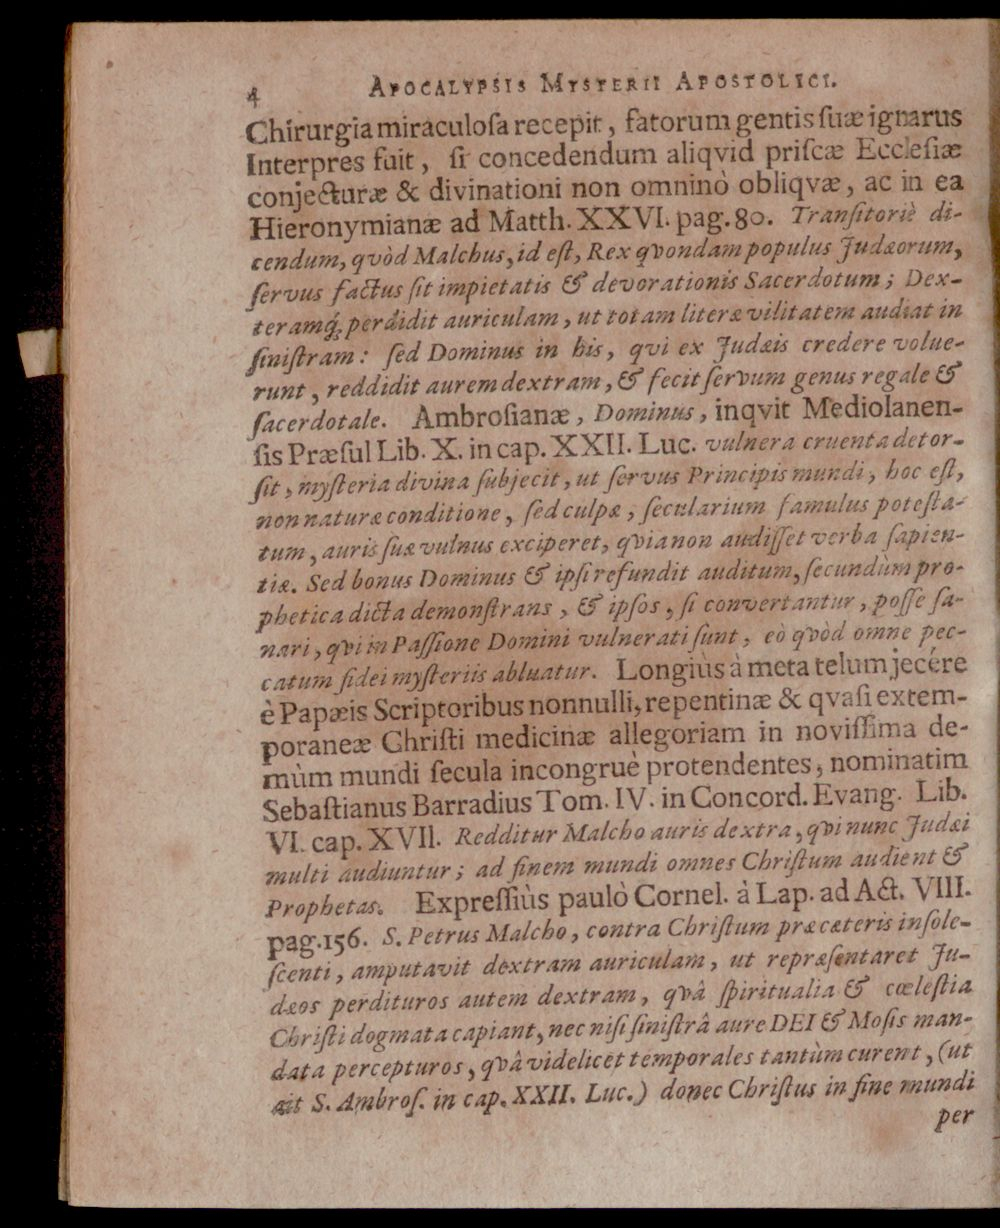 4 APOCALYPSIS MYSTERII APOSTOLICI.
Chirurgia miraculoſa recepit, fatorum gentis ſuæ ignarus
Interpres fuit, ſi concedendum aliqvid priſcæ Eccleſiæ
conjecturæ & divinationi non omninò obliqvæ, ac in ea
Hieronymianæ ad Matth. XXVI. pag. 80. Tranſitoriè di-
cendum, qvòd Malchus, id eſt, Rex qvondam populus Judæorum,
ſervus factus ſit impietatis & devorationis Sacerdotum; Dex-
teramq́; perdidit auriculam, ut totam literæ vilitatem audiat in
ſiniſtram: ſed Dominus in his, qvi ex Judæis credere volue-
runt, reddidit aurem dextram, & fecit ſervum genus regale &
ſacerdotale. Ambroſianæ, Dominus, inqvit Mediolanen-
ſis Præſul Lib. X. in cap. XXII. Luc. vulnera cruenta detor-
ſit, myſteria divina ſubjecit, ut ſervus Principis mundi, hoc eſt,
non naturæ conditione, ſed culpæ, ſecularium famulus poteſta-
tum, auris ſuæ vulnus exciperet, qvia non audiſſet verba ſapien-
tiæ. Sed bonus Dominus & ipſi refundit auditum, ſecundùm pro-
phetica dicta demonſtrans, & ipſos, ſi convertantur, poſſe ſa-
nari, qvi in Paſſione Domini vulnerati ſunt, eò qvòd omne pec-
catum fidei myſteriis abluatur. Longiùs à meta telum jecére
è Papæis Scriptoribus nonnulli, repentinæ & qvaſi extem-
poraneæ Chriſti medicinæ allegoriam in noviſſima de-
mùm mundi ſecula incongruè protendentes, nominatim
Sebaſtianus Barradius Tom. IV. in Concord. Evang. Lib.
VI. cap. XVII. Redditur Malcho auris dextra, qvi nunc Judæi
multi audiuntur; ad finem mundi omnes Chriſtum audient &
Prophetas. Expreſſiùs paulò Cornel. à Lap. ad Act. VIII.
pag. 156. S. Petrus Malcho, contra Chriſtum præ cæteris inſole-
ſcenti, amputavit dextram auriculam, ut repræſentaret Ju-
dæos perdituros autem dextram, qvâ ſpiritualia & cœleſtia
Chriſti dogmata capiant, nec niſi ſiniſtrâ aure DEI & Moſis man-
data percepturos, qvâ videlicet temporales tantùm curent, (ut
ait S. Ambroſ. in cap. XXII. Luc.) donec Chriſtus in fine mundi
per